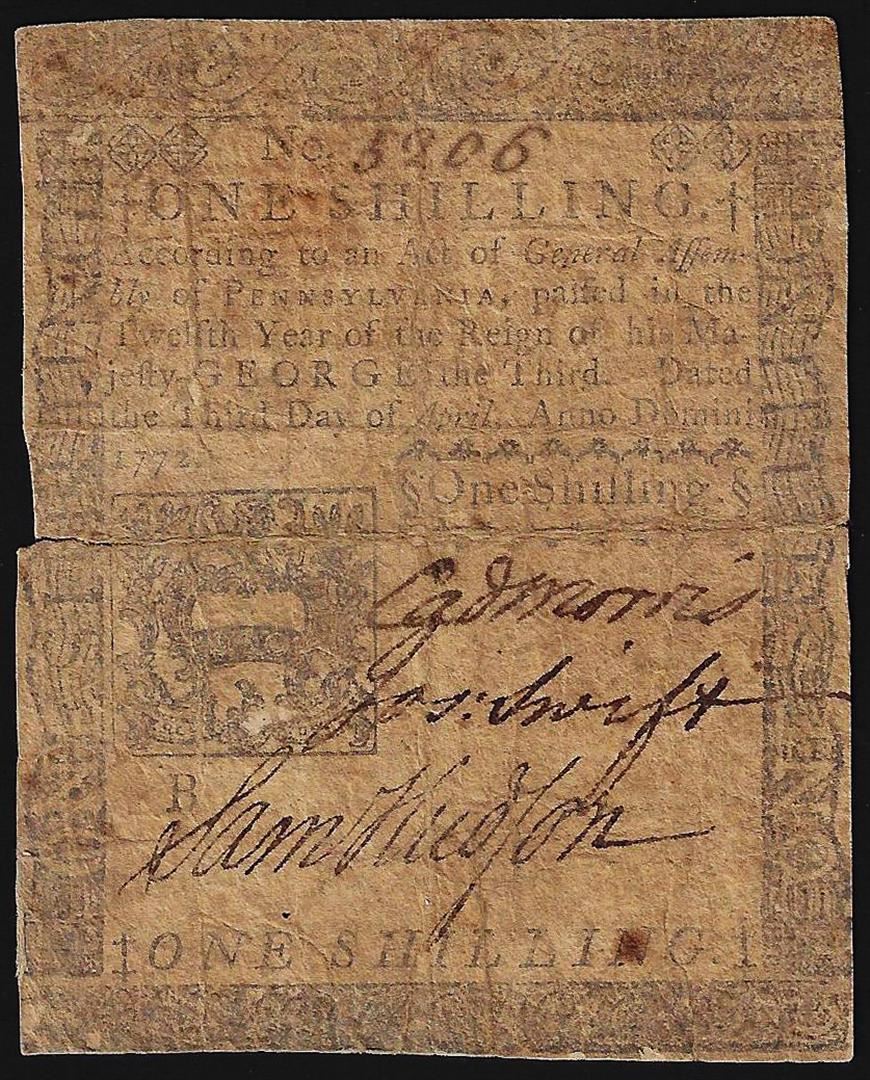 No. 5206
†ONE SHILLING.†
According to an Act of General Aſſem-
bly of PENNSYLVANIA, paſſed in the
Twelfth Year of the Reign of his Ma-
jeſty GEORGE the Third. Dated
the Third Day of April, Anno Domini
1772.
§One Shilling.§
Cad Morris
Jos: Swift
B
Sam Hudſon
‡ONE SHILLING.‡